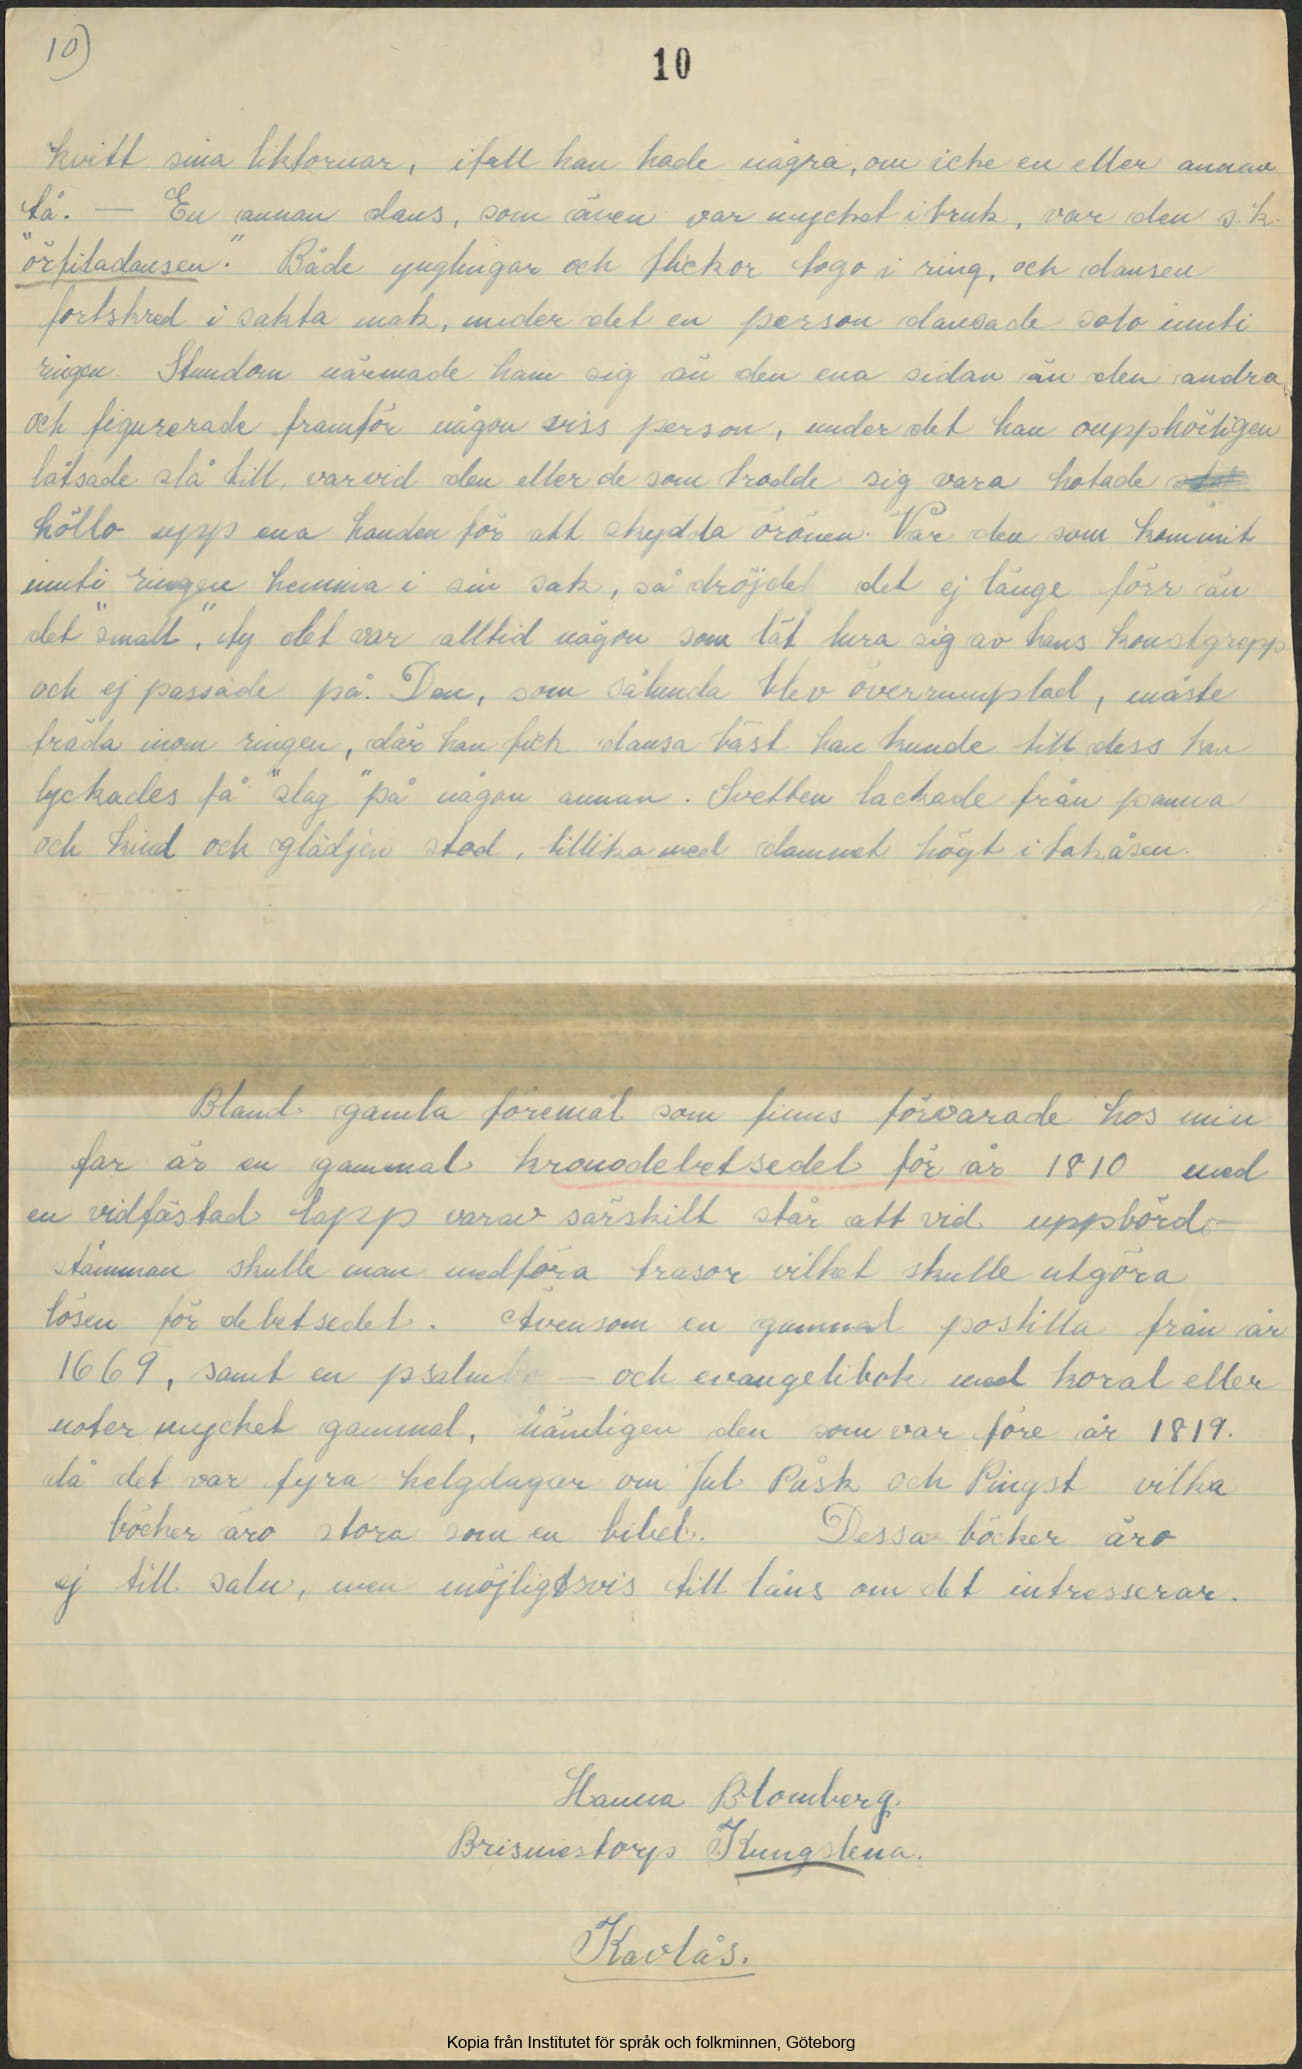 10)
10
kvitt sina liktornar, ifall han hade några, om icke en eller annan
tå. — En annan dans, som även var mycket i bruk, var den s.k.
"örfiladansen." Både ynglingar och flickor togo i ring, och dansen
fortskred i sakta mak, under det en person dansade solo innti
ringen. Stundom närmade han sig än den ena sidan än den andra
och figurerade framför någon viss person, under det han oupphörligen
låtsade slå till, varvid den eller de som trodde sig vara hotade
höllo upp ena handen för att skydda öronen. Var den som kommit
innti ringen hemma i sin sak, så dröjdet det ej länge förr än
det "small", ty det var alltid någon som lät lura sig av hans konstgrepp
och ej passade på. Den, som sålunda blev överrumplad, måste
träda inom ringen, där han fick dansa bäst han kunde till dess han
lyckades få "slag" på någon annan. Svetten lackade från panna
och kind och glädjen stod, tillika med dammet högt i takåsen.
Bland gamla föremål som finns förvarade hos min
far är en gammal kronodebetsedel för år 1810 med
en vidfästad lapp varav särskilt står att vid uppbörds-
stämman skulle man medföra trasor vilket skulle utgöra
lösen för debetsedel. Ävensom en gammal postilla från år
1669, samt en psalmbo - och evangelibok med koral eller
noter mycket gammal, nämligen den som var före år 1819.
då det var fyra helgdagar om Jul Påsk och Pingst vilka
böcker äro stora som en bibel. Dessa böcker äro
ej till salu, men möjligtsvis till låns om det intresserar.
Hanna Blomberg.
Brismestorp Kungslena.
Kavlås.
Kopia från Institutet för språk och folkminnen, Göteborg